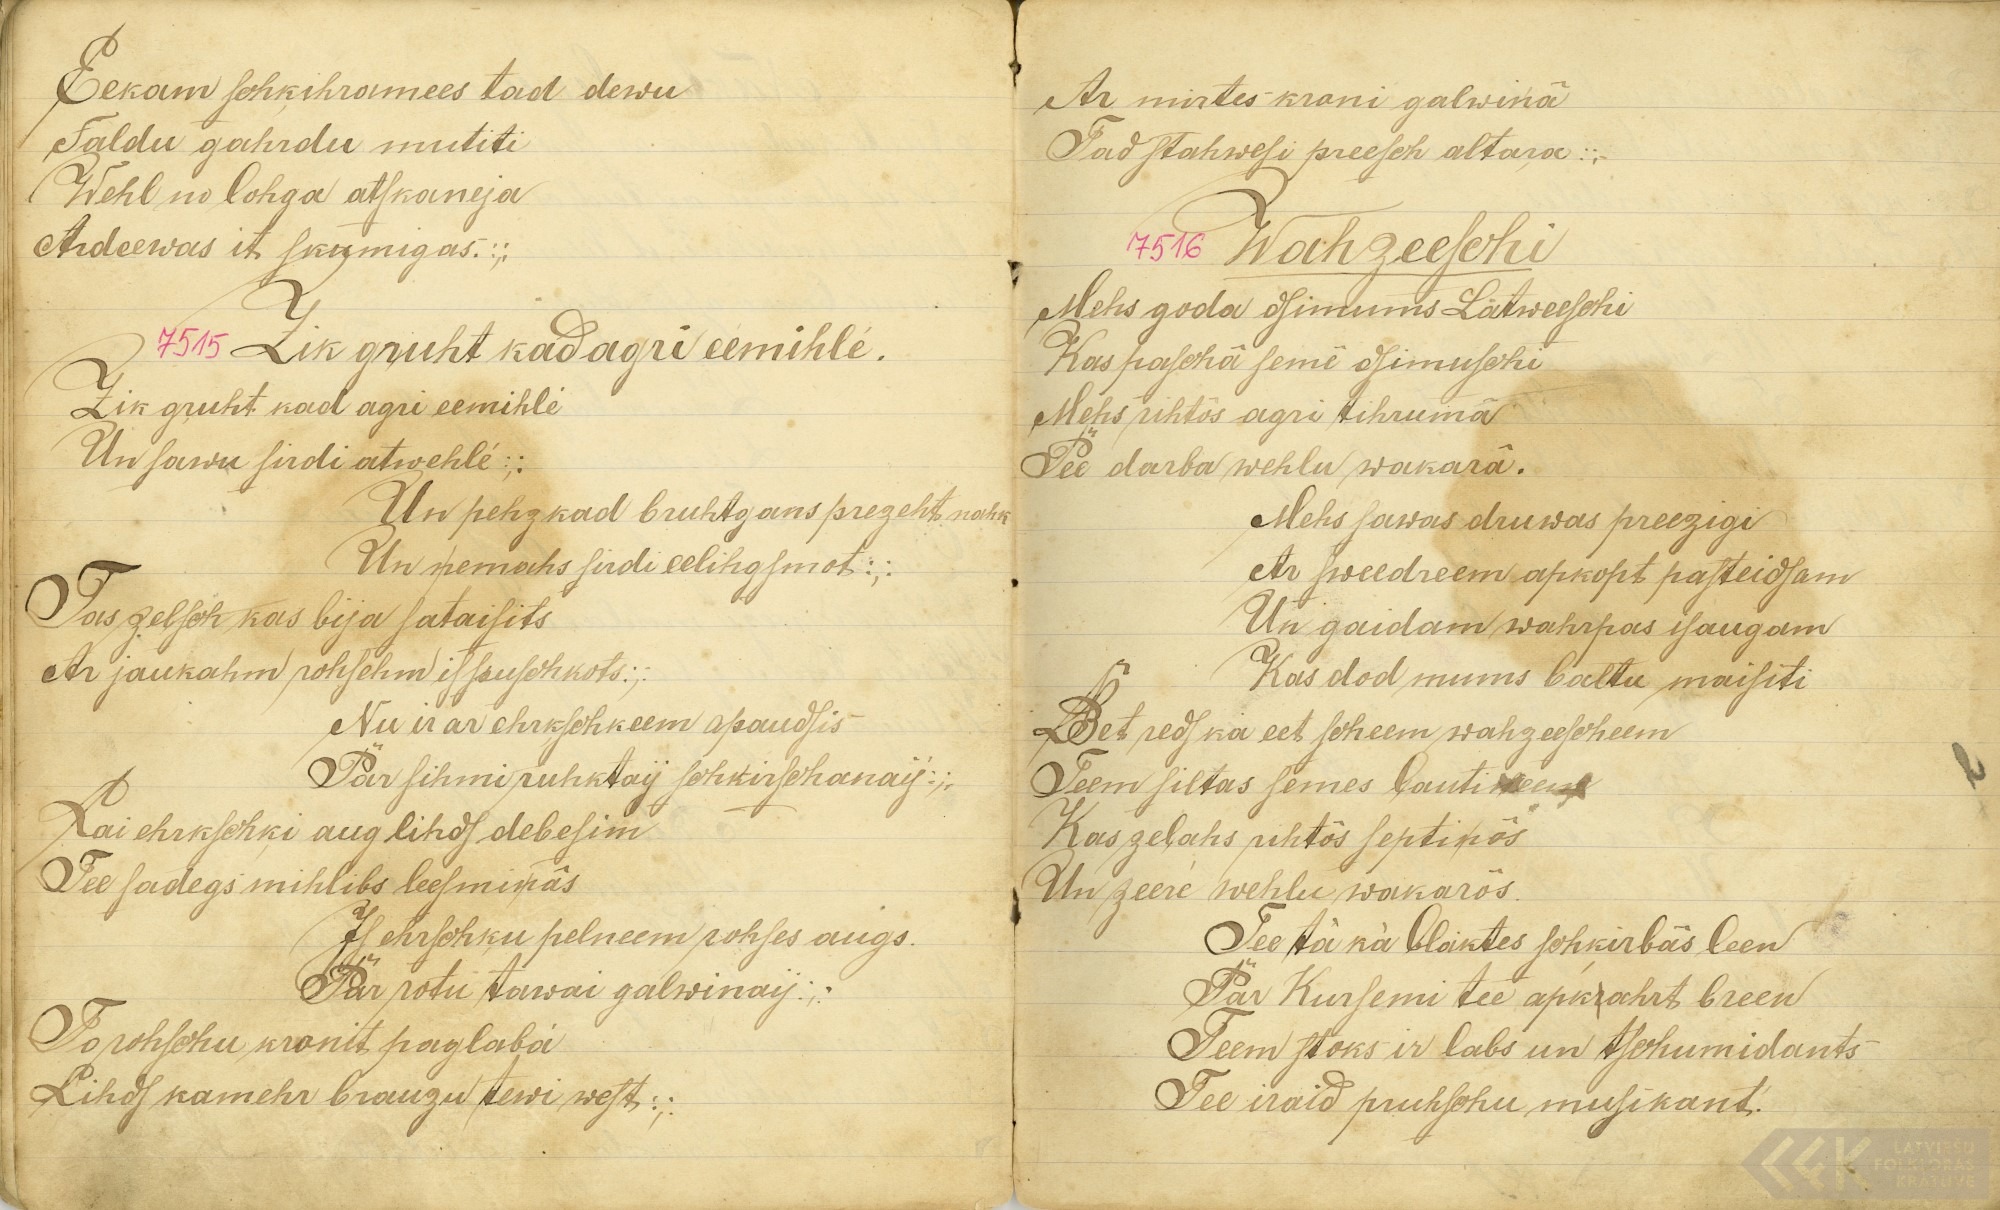 Eekam schķihramees tad dewu
Saldu gahrdu mutiti
Wehl no lohga atskaneja
Ardeewas it skumigas.:;:
7515 Zik gruht kad agri eemihlé.
Zik gruht kad agri eemihlé
Un sawu sirdi atwehlé:;:
Un pehz kad bruhtgans prezeht nahk
Un ņemahs sirdi eelihgsmot:;:
Tas zelsch kas bija sataisits
Ar jaukahm rohsehm ispuschkots:;:
Nu ir ar ehrkschkeem apaudsis
Pär sihmi ruhktaij schkirschanaij:;:
Lai ehrkschķi aug lihds debesim
Tee sadegs mihlibs leesminâs
Is ehrschku pelneem rohses augs.
Pär rotu tawai galwinaij:;:
To rohschu kronit paglabá
Lihds kamehr brauzu tewi west:;:
Ar mirtes kroni galwinâ
Tad stahwesi preesch altara:;:
7516 Wahzeeschi
Mehs goda dsimums Latweeschi
Kas paschâ semê dsimuschi
Mehs rihtôs agri tihrumâ
Pee darba wehlu wakarâ.
Mehs sawas druwas preezigi
Ar sweedreem apkopt pasteidsam
Un gaidam wahrpas isaugam
Kas dod mums baltu maisiti
Bet reds ka eet scheem wahzeescheem
Teem siltas semes lauti
Kas zeļahs rihtôs septiņôs
Un zeeré wehlu wakarôs.
Tee tà kà blaktes schkirbâs leen
Pär Kursemi tee apkrahrt breen
Teem stoks ir labs un tschumidants
Tee iraid pruhschu musikant.
LATVIEŠU
FOLKLORAS
KRĀTUVE